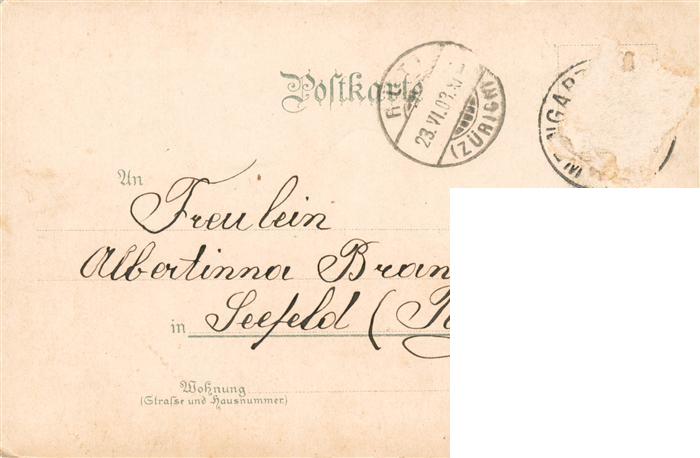 Postkarte
23.VI.03
(ZÜRICH)
An
Freulein
Albertinna Bran
in Seefeld (
Wohnung
(Strasse und Hausnummer)